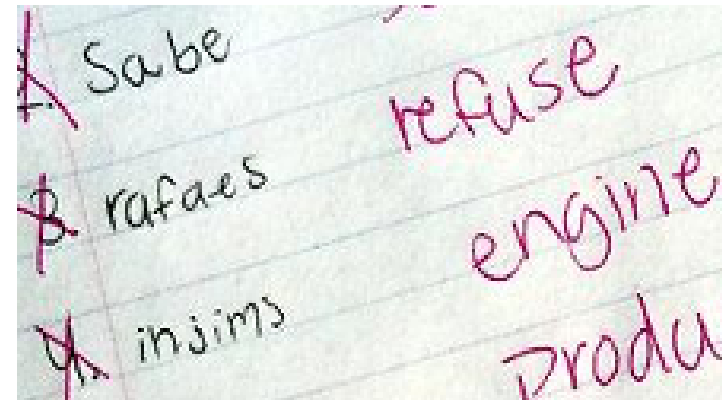 2. Sabe
3. rafaes refuse
4. injims engine
produ